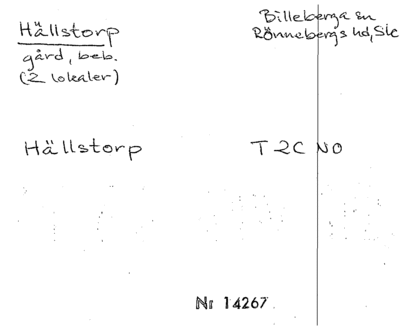 Hällstorp
gård, beb.
(2 lokaler)
Billeberga sn
Rönnebergs hd, Sk
Hällstorp
T 2C NO
Nr 14267